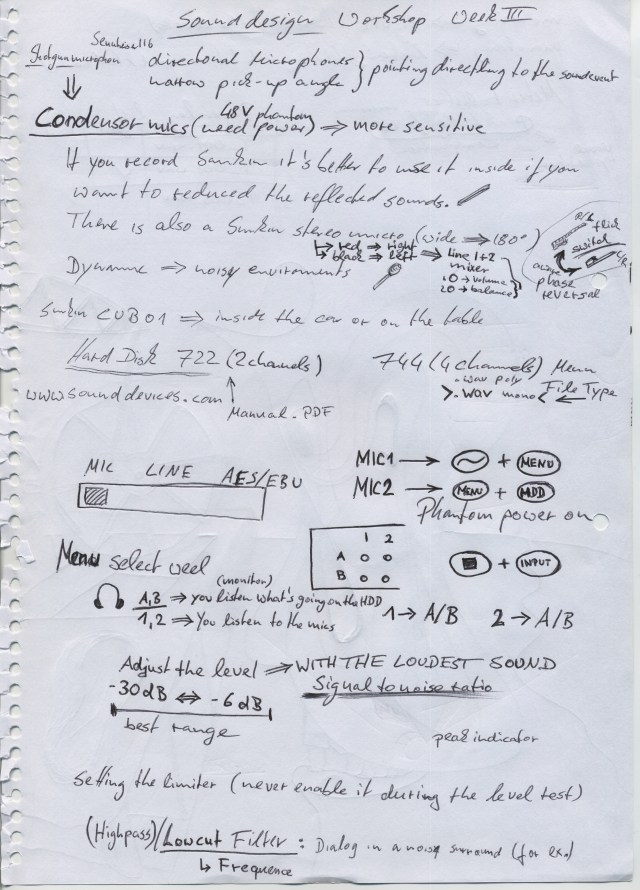 Sound design Workshop Week III
Sennheiser 416
Shotgun microphon directional Microphones } pointing directling to the soundevent
narrow pick-up angle
48V phantom
Condensor mics (need power) ⇒ more sensitive
If you record Sankin it's better to use it inside if you
want to reduced the reflected sounds.
There is also a Sankin stereo micro (wide ⇒ 180°)
↳ red ⇒ right
↳ black ⇒ left ⇒ line 1+2
mixer
10 → volume
20 → balance
flick
switch
phase
reversal
Dynamic ⇒ noisy enviroments
Sankin CUB01 ⇒ inside the car or on the table
Hard Disk 722 (2 channels) 744 (4 channels) Menu
.wav poly
>.wav mono< ⇐ File Type
www.sounddevices.com
Manual.PDF
MIC LINE AES/EBU
MIC1 → ~ + MENU
MIC2 → MENU + HDD
Phantom power on
1 2
A o o
B o o
■ + INPUT
Menu select weel
(monitor)
A,B ⇒ you listen what's going on the HDD
1,2 ⇒ You listen to the mics
1→ A/B 2→ A/B
Adjust the level ⇒ WITH THE LOUDEST SOUND
-30 dB ⇔ -6 dB Signal to noise ratio
best range
peak indicator
Setting the limiter (never enable it during the level test)
(Highpass)/Lowcut Filter : Dialog in a noisy surround (for ex.)
↳ Frequence